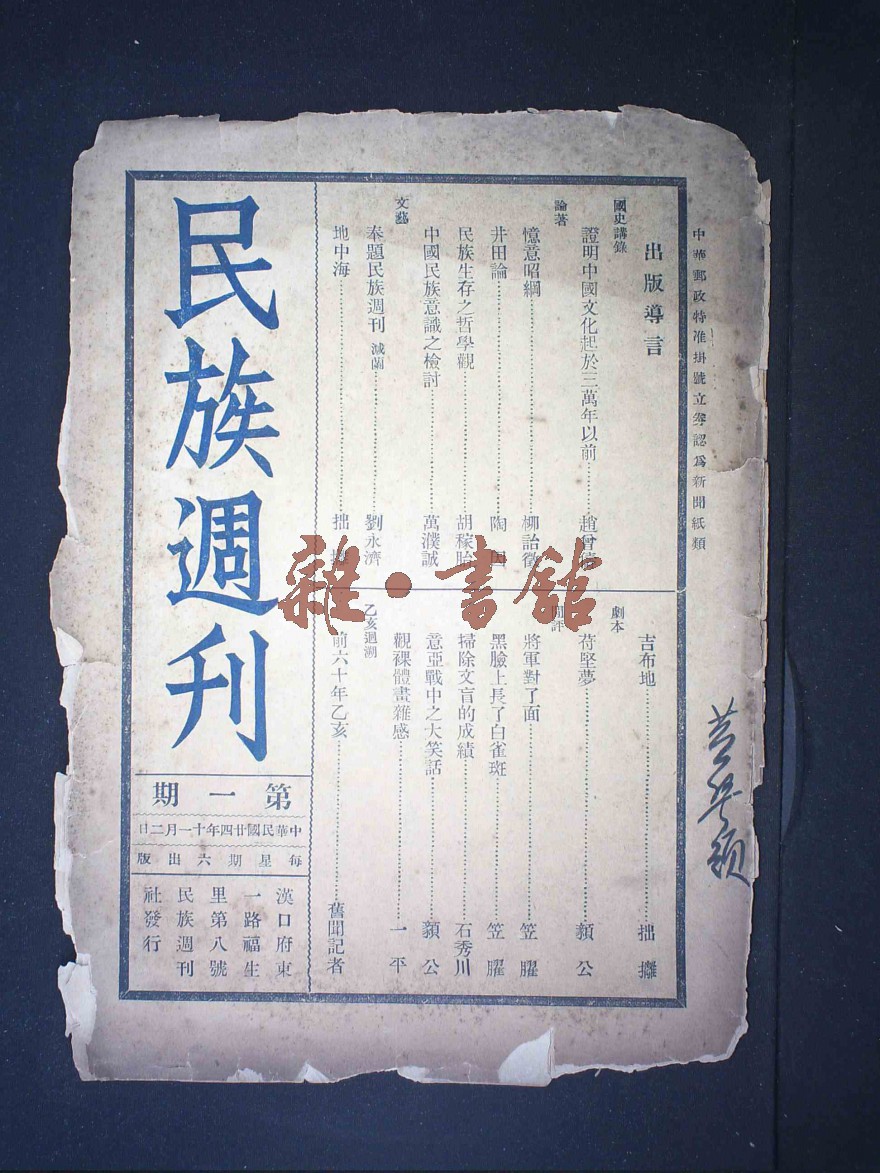 中華郵政特准掛號立券認爲新聞紙類
出版導言
國史講錄
證明中國文化起於三萬年以前……趙曾
論著
憶意昭綱……柳詒徵
井田論……陶
民族生存之哲學觀……胡稼胎
中國民族意識之檢討……萬濮誠
文藝
奉題民族週刊 減蘭……劉永濟
地中海……拙
劇本
吉布地……拙攡
苻堅夢……纇公
評
將軍對了面……笠臞
黑臉上長了白雀斑……笠臞
掃除文盲的成績……石秀川
意亞戰中之大笑話……纇公
觀裸體畫雜感……一平
乙亥迴溯
前六十年乙亥……舊聞記者
民族週刊
第一期
中華民國廿四年十一月二日
每星期六出版
漢口府東
一路福生
里第八號
民族週刊
社發行
雜·書館